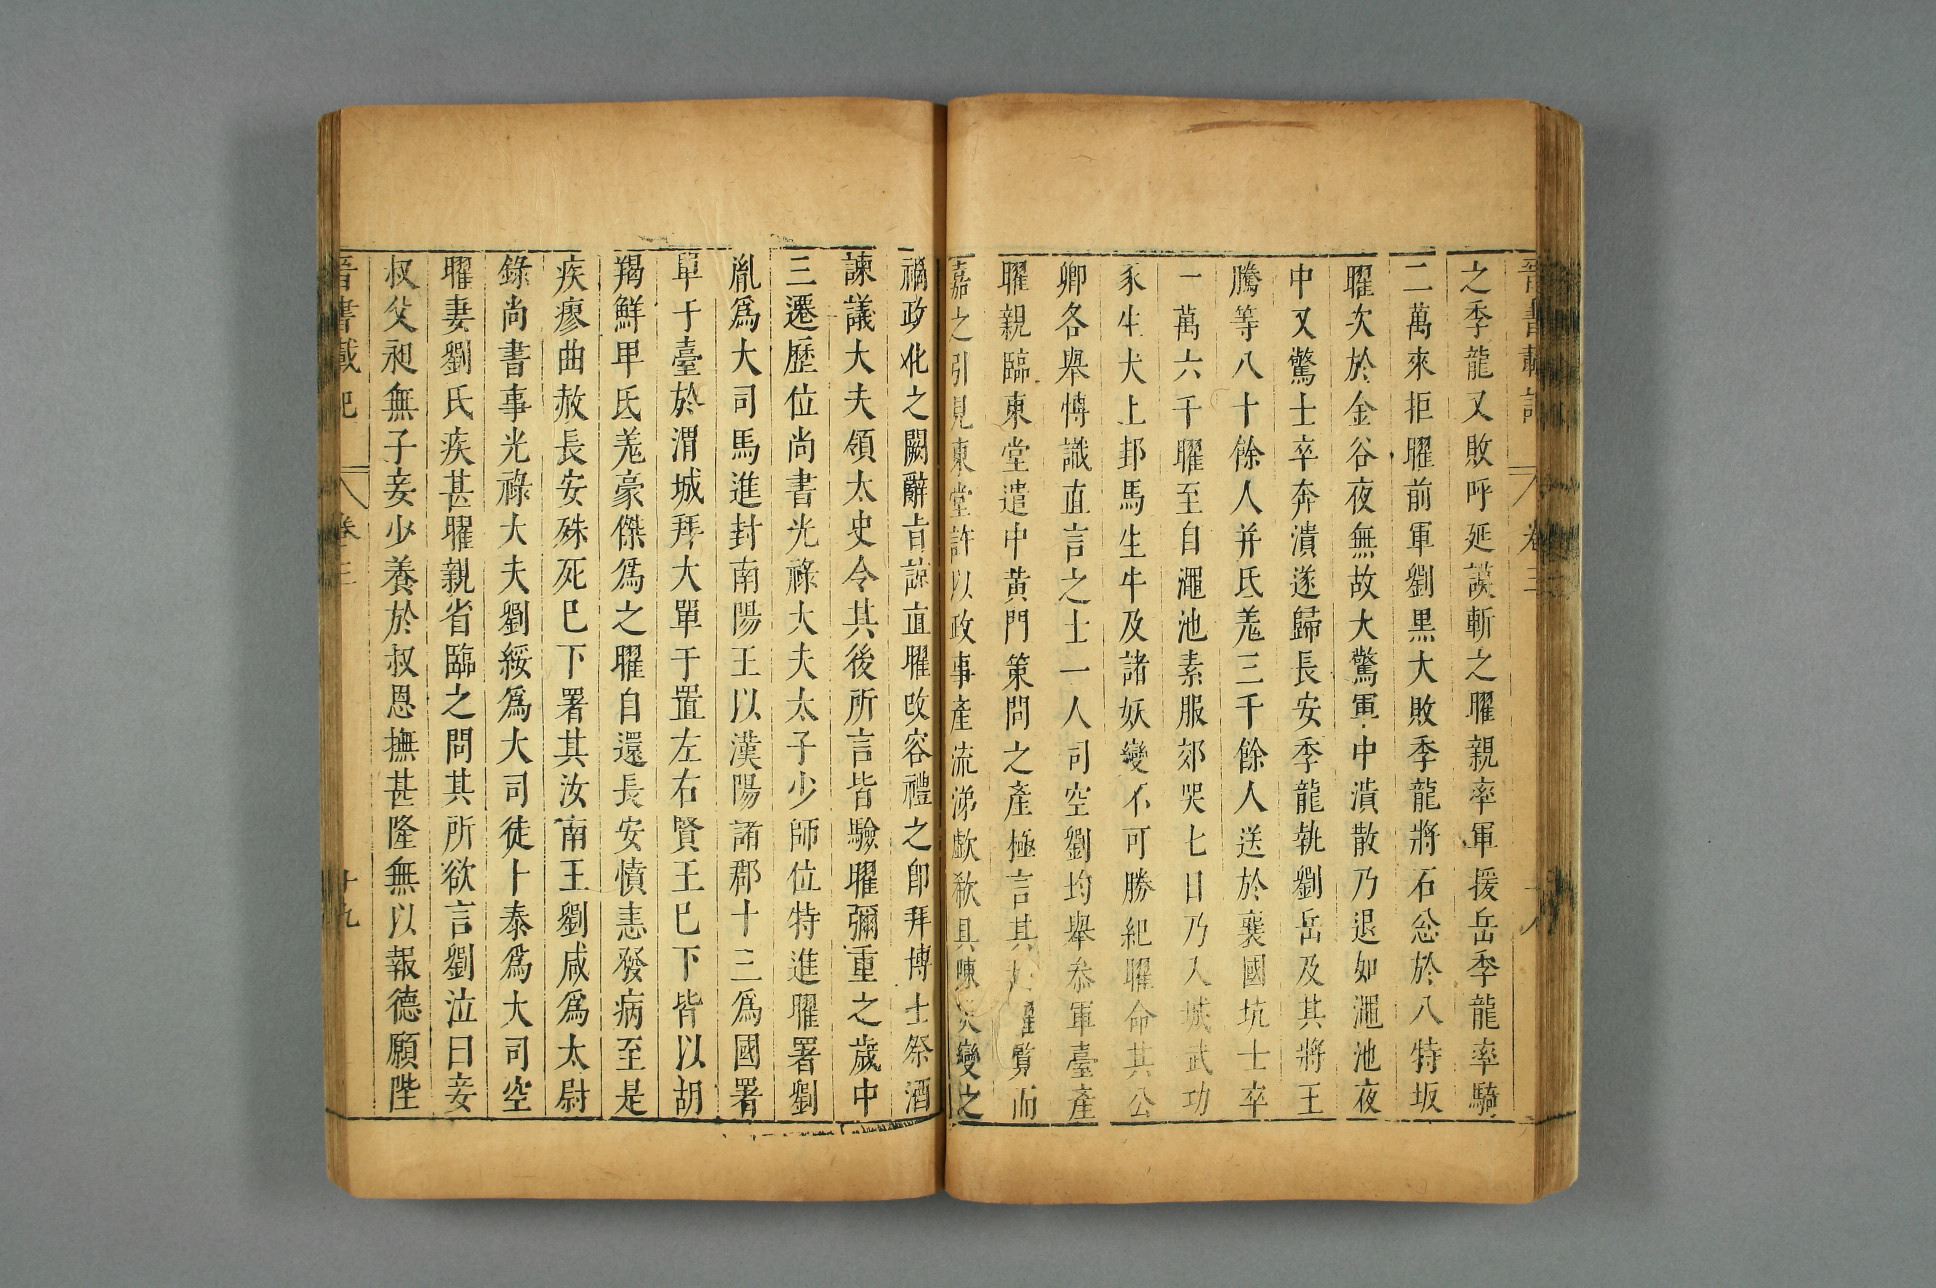 晉書載記 卷三 十八
之季龍又敗呼延謨斬之曜親率軍援岳季龍率騎
二萬來拒曜前軍劉黑大敗季龍將石忩於八特坂
曜次於金谷夜無故大驚軍中潰散乃退如澠池夜
中又驚士卒奔潰遂歸長安季龍執劉岳及其將王
騰等八十餘人并氐羗三千餘人送於襄國坑士卒
一萬六千曜至自澠池素服郊哭七日乃入城武功
豕生犬上邽馬生牛及諸妖變不可勝紀曜命其公
卿各舉博識直言之士一人司空劉均舉叅軍臺產
曜親臨東堂遣中黃門策問之產極言其 曜覽而
嘉之引見東堂訪以政事產流涕歔欷具陳災變之
禍政化之闕辭旨諒直曜改容禮之即拜博士祭酒
諫議大夫領太史令其後所言皆驗曜彌重之歲中
三遷歷位尚書光祿大夫太子少師位特進曜署劉
胤爲大司馬進封南陽王以漢陽諸郡十三爲國署
單于臺於渭城拜大單于置左右賢王巳下皆以胡
羯鮮甲氐羗豪傑爲之曜自還長安憤恚發病至是
疾瘳曲赦長安殊死巳下署其汝南王劉咸爲太尉
錄尚書事光祿大夫劉綏爲大司徒卜泰爲大司空
曜妻劉氏疾甚曜親省臨之問其所欲言劉泣曰妾
叔父昶無子妾少養於叔恩撫甚隆無以報德願陛
晉書載記 卷三 十九